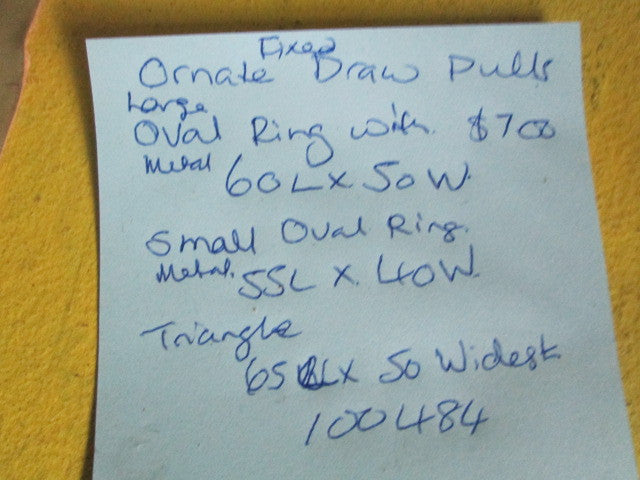 Fixed
Ornate Draw Pulls
Large
Oval Ring with $700
Metal 60L x 50W
Small Oval Ring.
Metal. 55L x 40W
Triangle
65 L x 50 Widest
100484